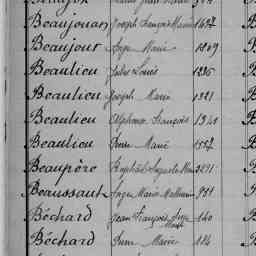 Beaujouan Joseph François Marie 1427
Beaujour Ange Marie 1809
Beaulieu Jules Louis 1236
Beaulieu Joseph Marie 1321
Beaulieu Alphonse François 1341
Beaulieu Anne Marie 1557
Beaupère Raphaël Auguste Marie 2491
Beaussault Ange Marie Mathurin 951
Béchard Jean François Ange Marie 140
Béchard Anne Marie 114